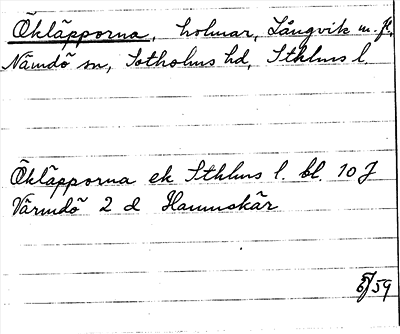 Ökläpporna, holmar, Långvik m. fl.
Nämdö sn, Sotholms hd, Sthlms l.
Ökläpporna ek Sthlms l. bl. 10 J
Värmdö 2 d Hamnskär
5/59